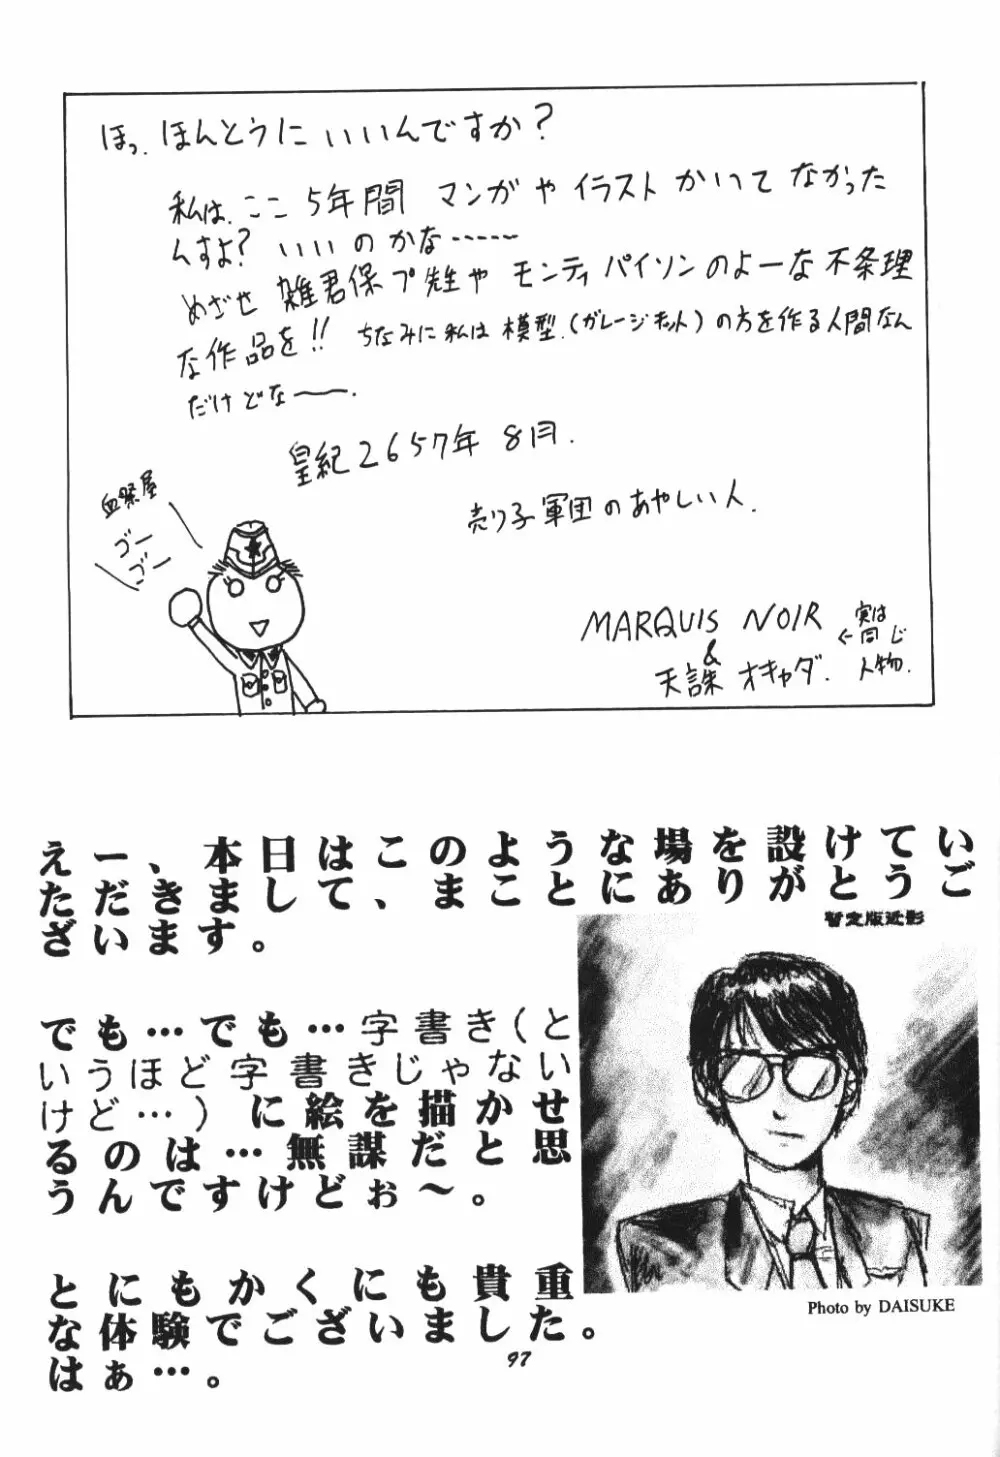 ほっ、ほんとうに いいんですか?
私は、ここ 5年間 マンガや イラスト かいて なかった
んすよ? いいの かな……
めざせ 雑君保プ先生や モンティパイソンのよーな不条理
な作品を!! ちなみに私は 模型(ガレージキット)の方を作る人間なん
だけどな〜。
皇紀2657年 8月.
売り子軍団のあやしい人.
血祭屋
ゴー
ゴー
MARQUIS NOIR
&
天誅 オキャダ.
実は
←同じ
人物.
えー、本日はこのような場を設けてい
ただきまして、まことにありがとうご
ざいます。
暫定版近影
でも…でも…字書き(と
いうほど字書きじゃない
けど…)に絵を描かせ
るのは…無謀だと思
うんですけどぉ〜。
とにもかくにも貴重
な体験でございました。
はぁ…。
Photo by DAISUKE
97